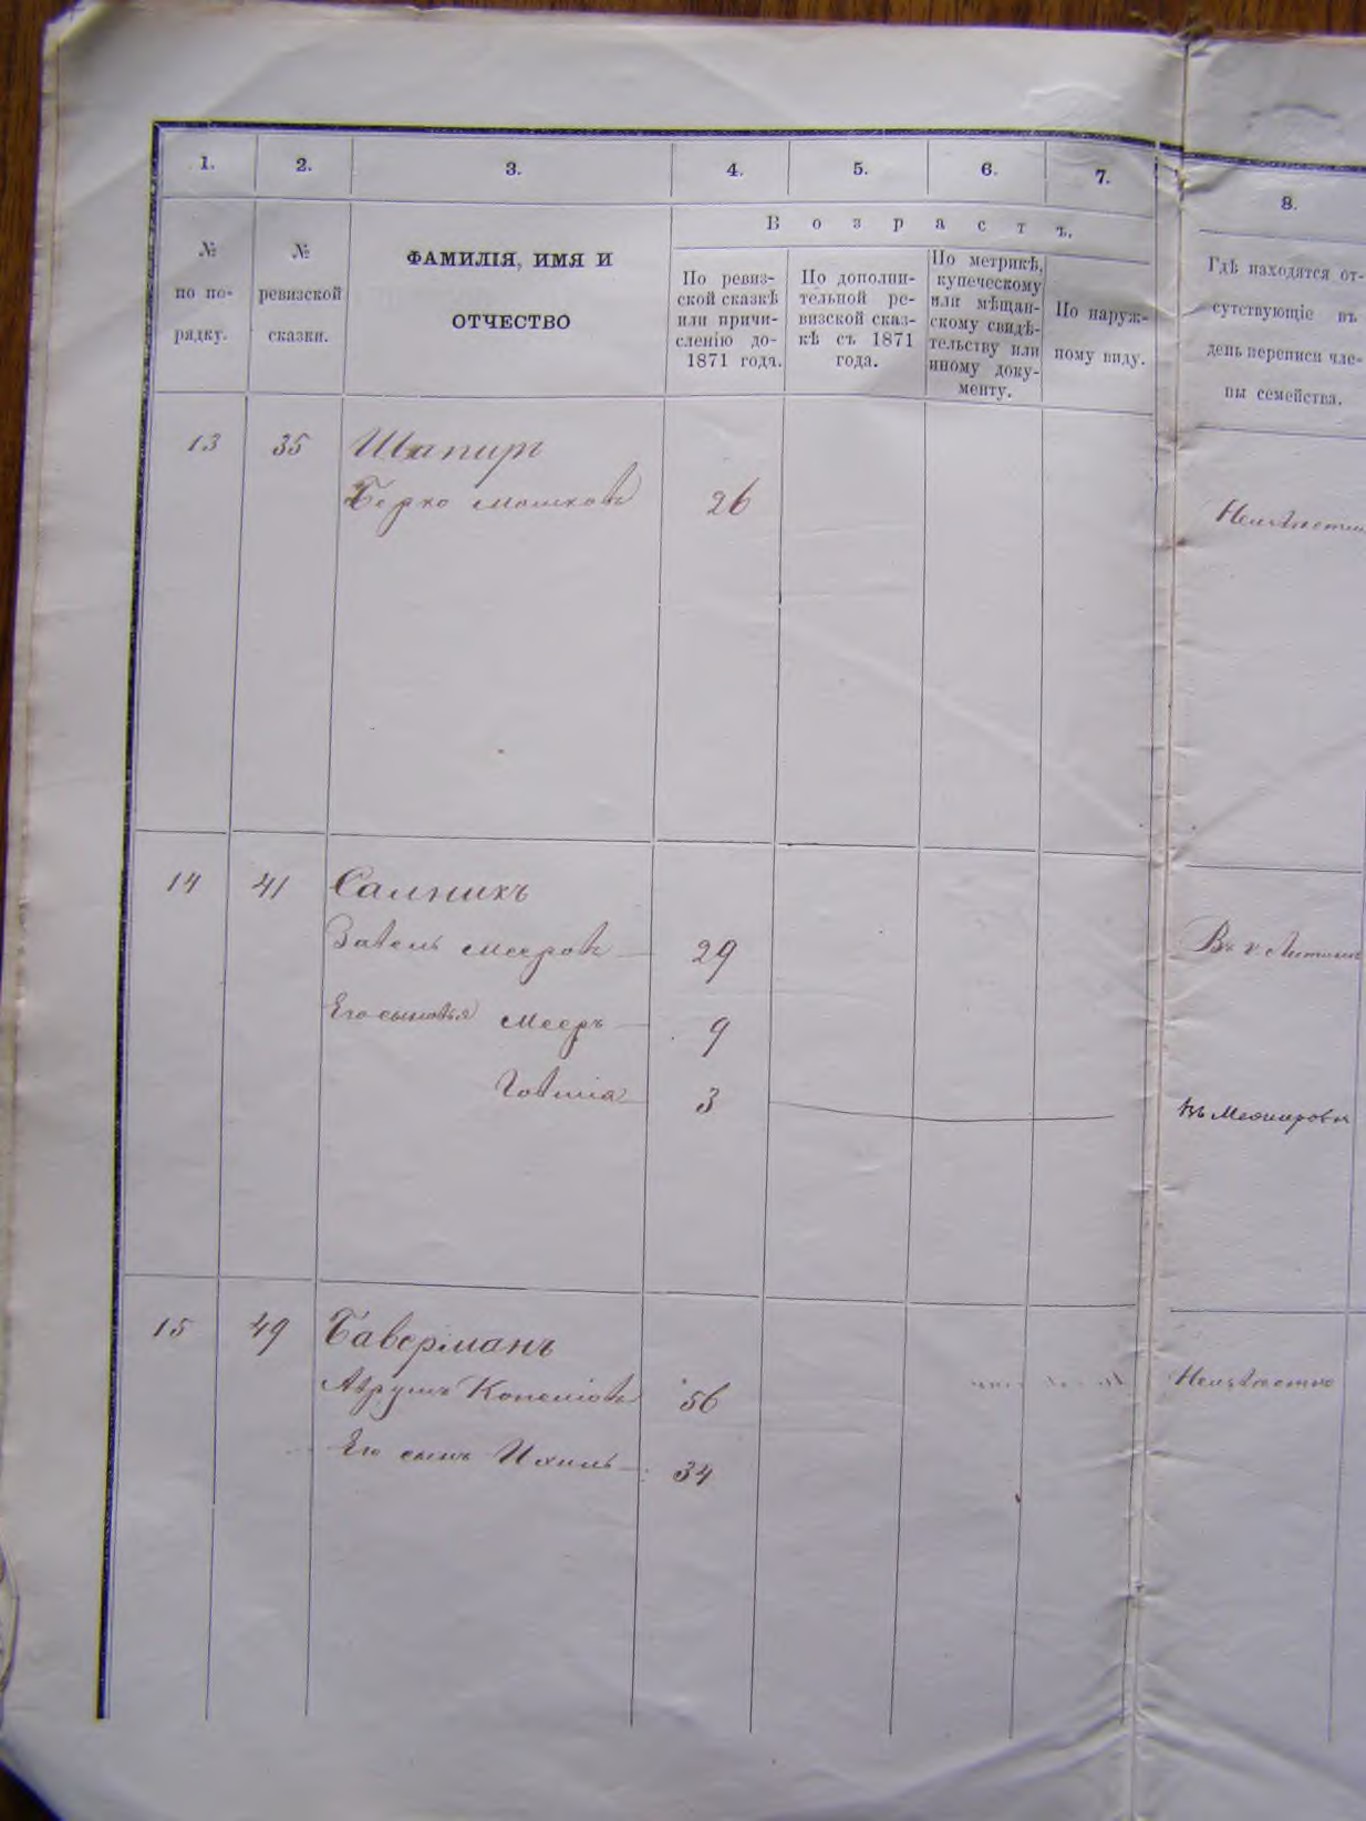 1. 2. 3. 4. 5. 6. 7. 8.
Возрастъ.
№
по по-
рядку.
№
ревизской
сказки.
ФАМИЛІЯ, ИМЯ И
ОТЧЕСТВО
По ревиз-
ской сказкѣ
или причи-
сленію до-
1871 года.
По дополни-
тельной ре-
визской сказ-
кѣ съ 1871
года.
По метрикѣ,
купеческому
или мѣщан-
скому свидѣ-
тельству или
иному доку-
менту.
По наруж-
ному виду.
Гдѣ находятся от-
сутствующіе въ
день переписи чле-
ны семейства.
13 35 Шапиръ
Берко Мошковъ 26
14 41 Салникъ
Завель Мееровъ 29 Въ г.
Его сыновья Мееръ 9
Говшіа 3 въ
15 49 Баверманъ
Аврумъ 56 Неизвѣстно
Его сынъ Ихиль 34